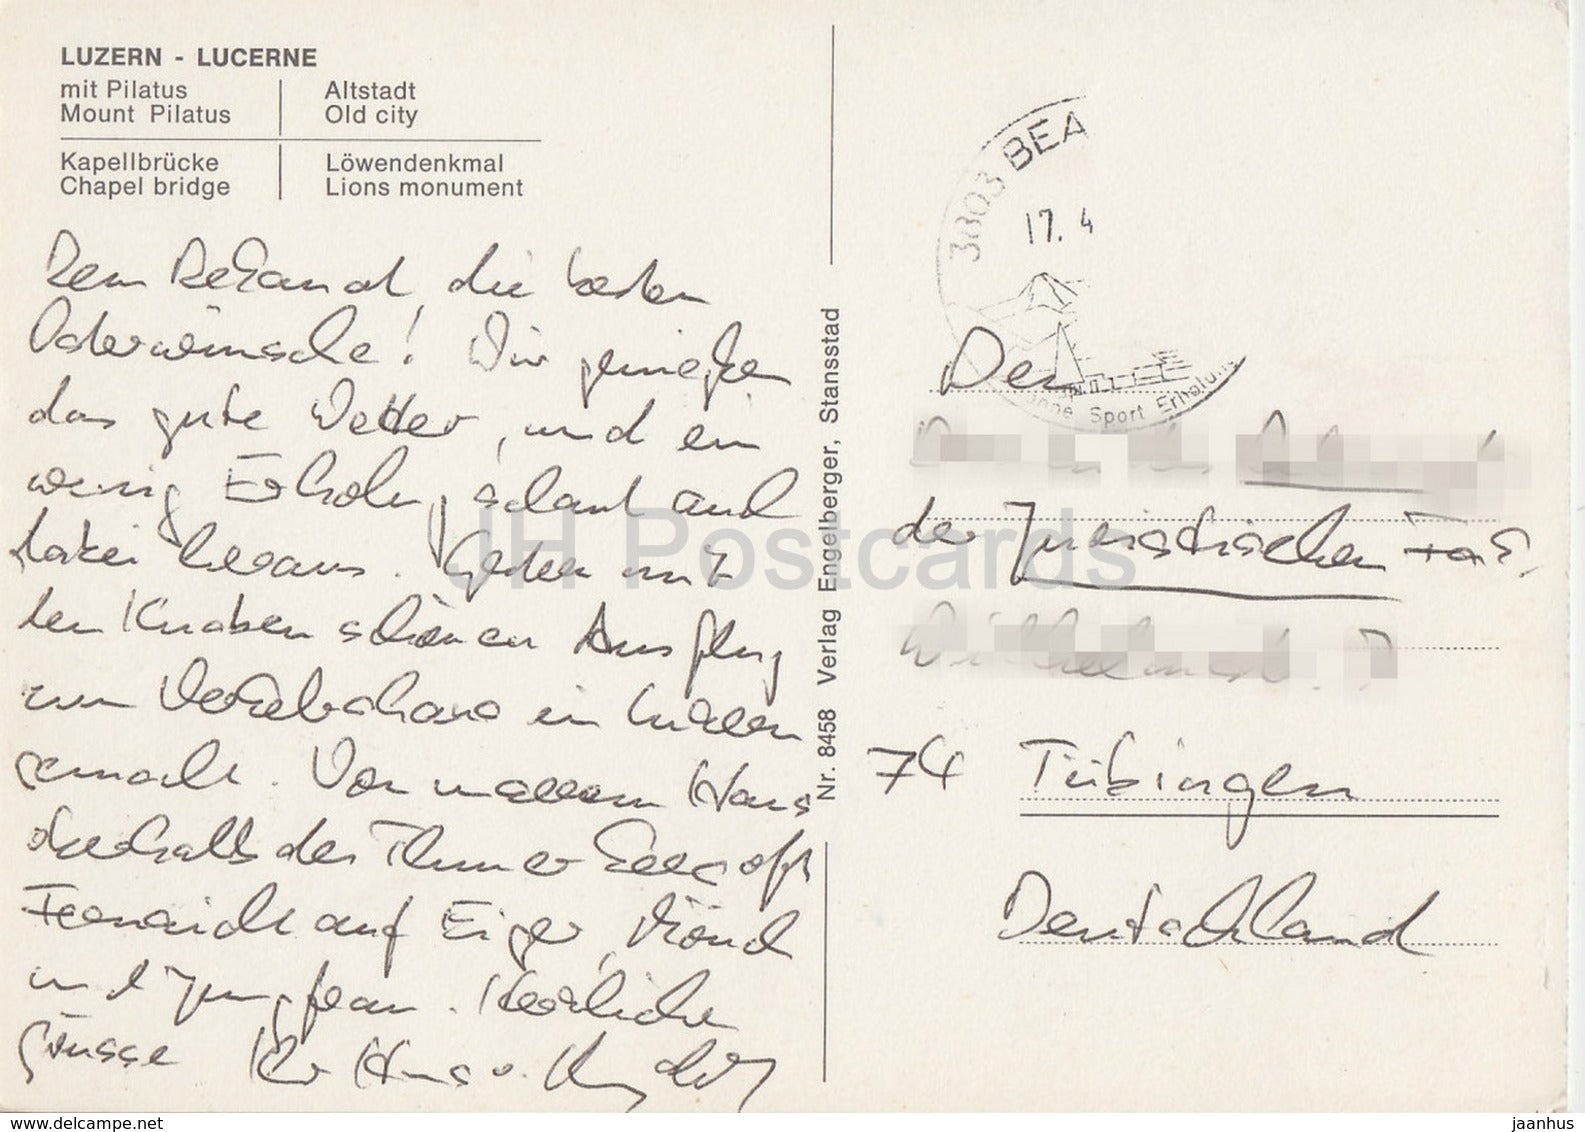 LUZERN - LUCERNE
mit Pilatus
Mount Pilatus
Altstadt
Old city
Kapellbrücke
Chapel bridge
Löwendenkmal
Lions monument
Dem Dekanat, die besten
Osterwünsche! Wir genießen
das gute Wetter, und ein
wenig Erholung schaut auch
dabei heraus. Gestern mit
den Knaben schönen Ausflug
zum Verkehrshaus in Luzern
gemacht. Von unserem Haus
oberhalb des Thuner Sees oft
Fernsicht auf Eiger, Mönch
und Jungfrau. Herzliche
Grüsse Ihr Hans v.
Nr. 8458 Verlag Engelberger, Stansstad
3803 BEA
17. 4
Sport Erholung
Den
der Juristischen Fak.
74 Tübingen
Deutschland
JH Postcards
www.delcampe.net
jaanhus